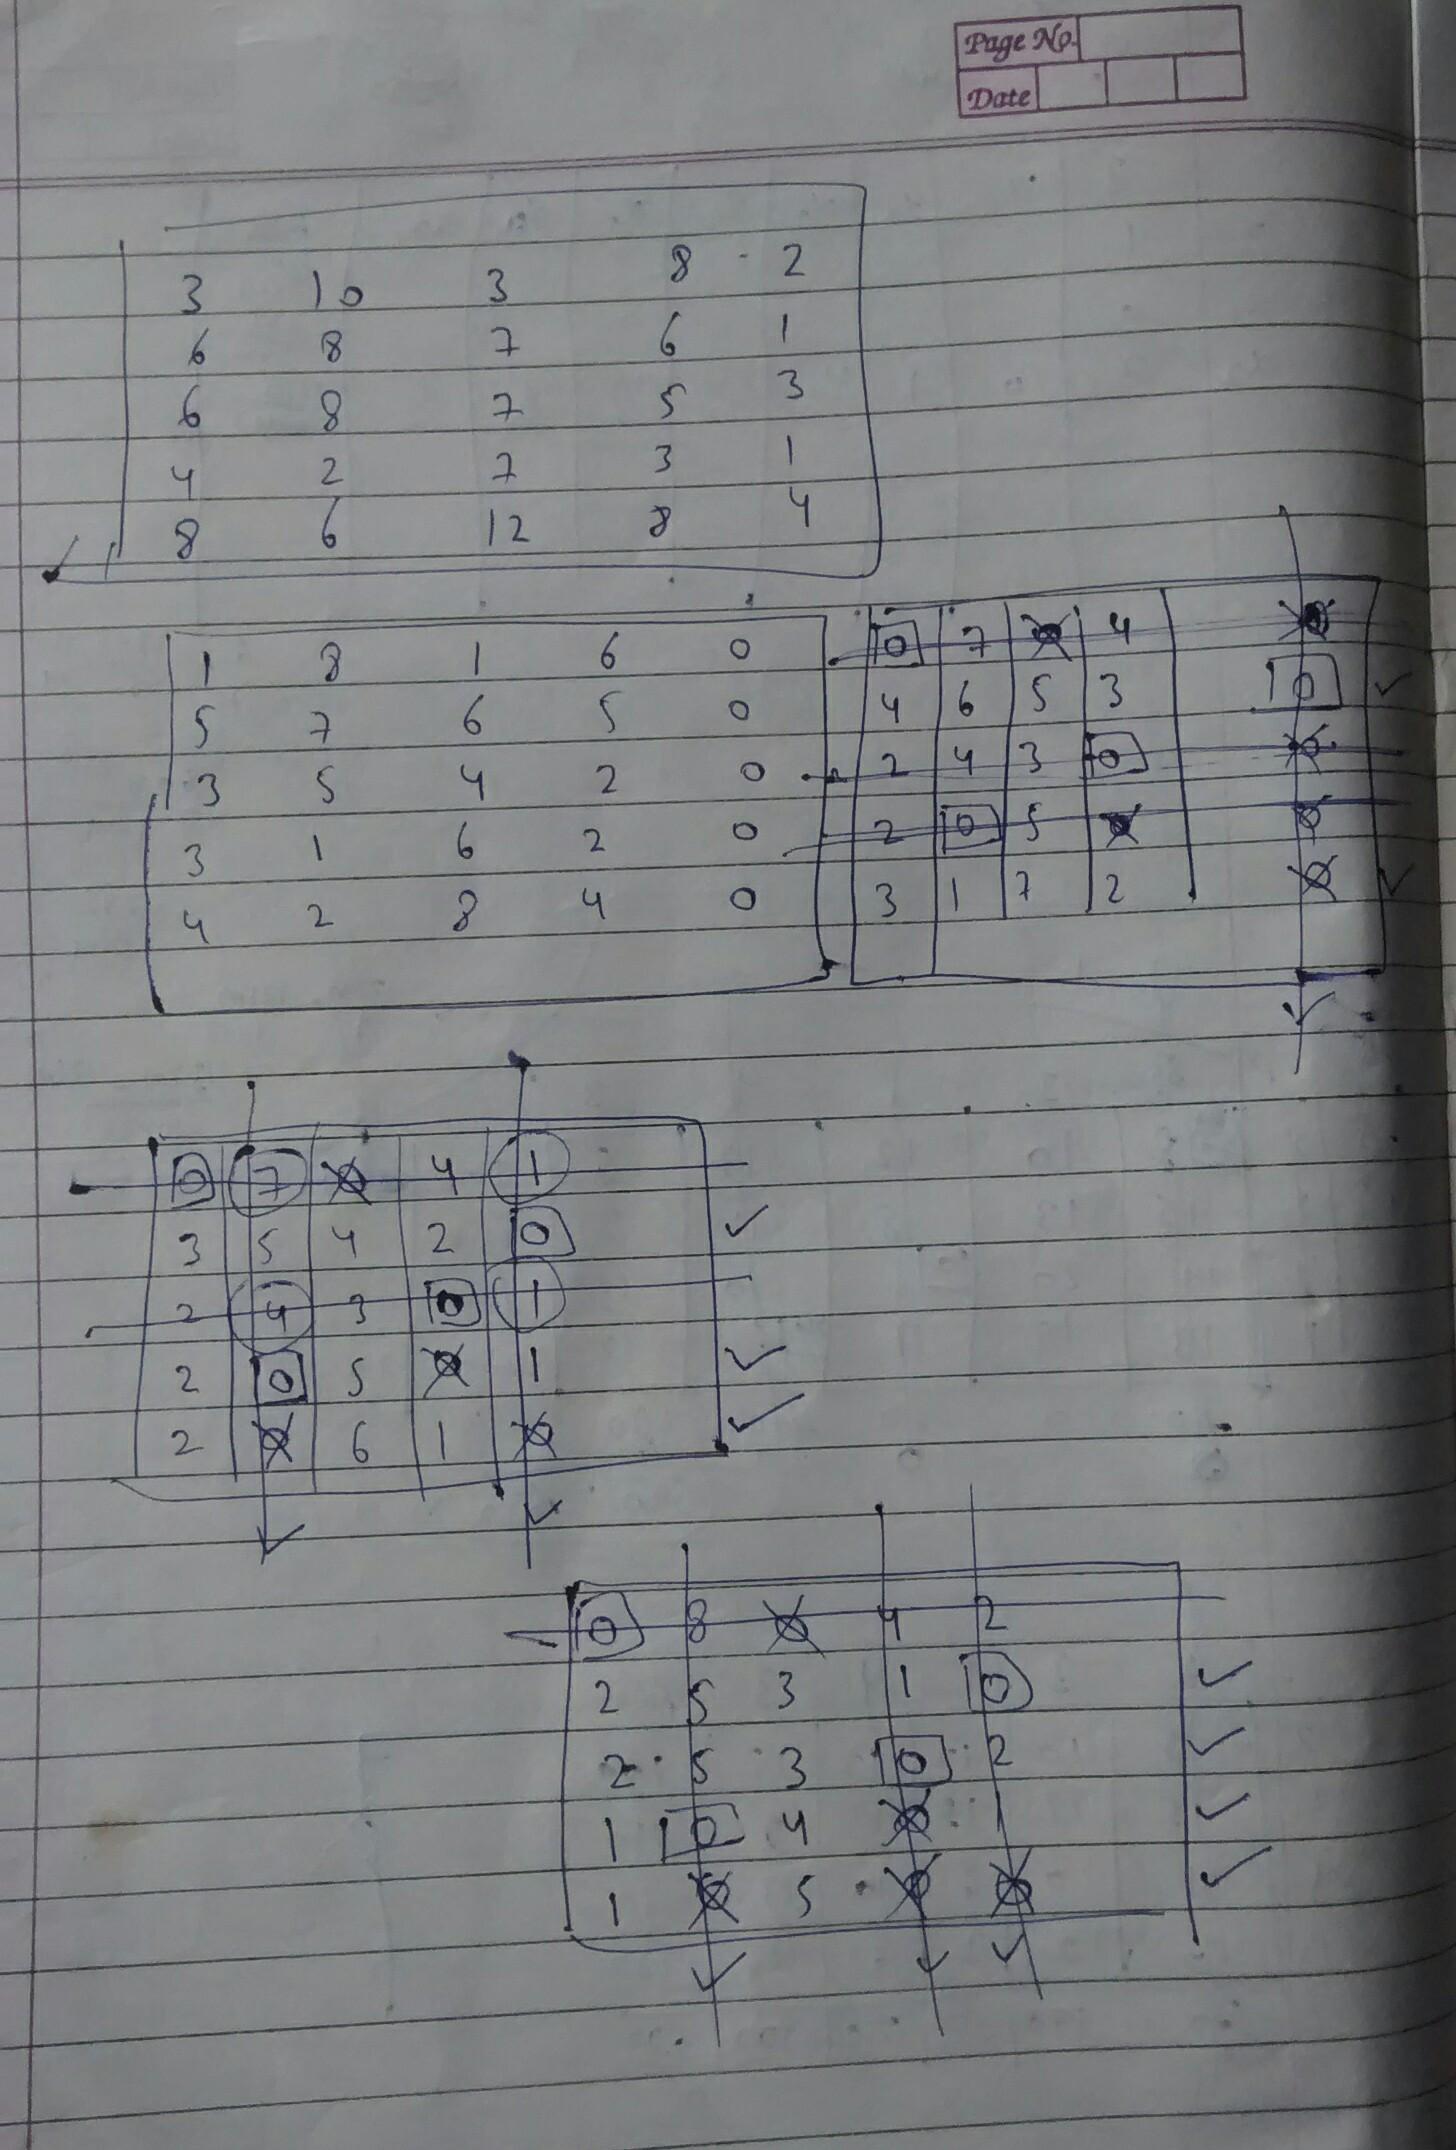 Page No.
Date
3 10 3 8 2
6 8 7 6 1
6 8 7 5 3
4 2 7 3 1
8 6 12 8 4
1 8 1 6 0
5 7 6 5 0
3 5 4 2 0
3 1 6 2 0
4 2 8 4 0
0 7 0 4 0
4 6 5 3 0
2 4 3 0 0
2 0 5 0 0
3 1 7 2 0
0 7 0 4 1
3 5 4 2 0
2 4 3 0 1
2 0 5 0 1
2 0 6 1 0
0 8 0 4 2
2 5 3 1 0
2 5 3 0 2
1 0 4 0 1
1 0 5 0 0